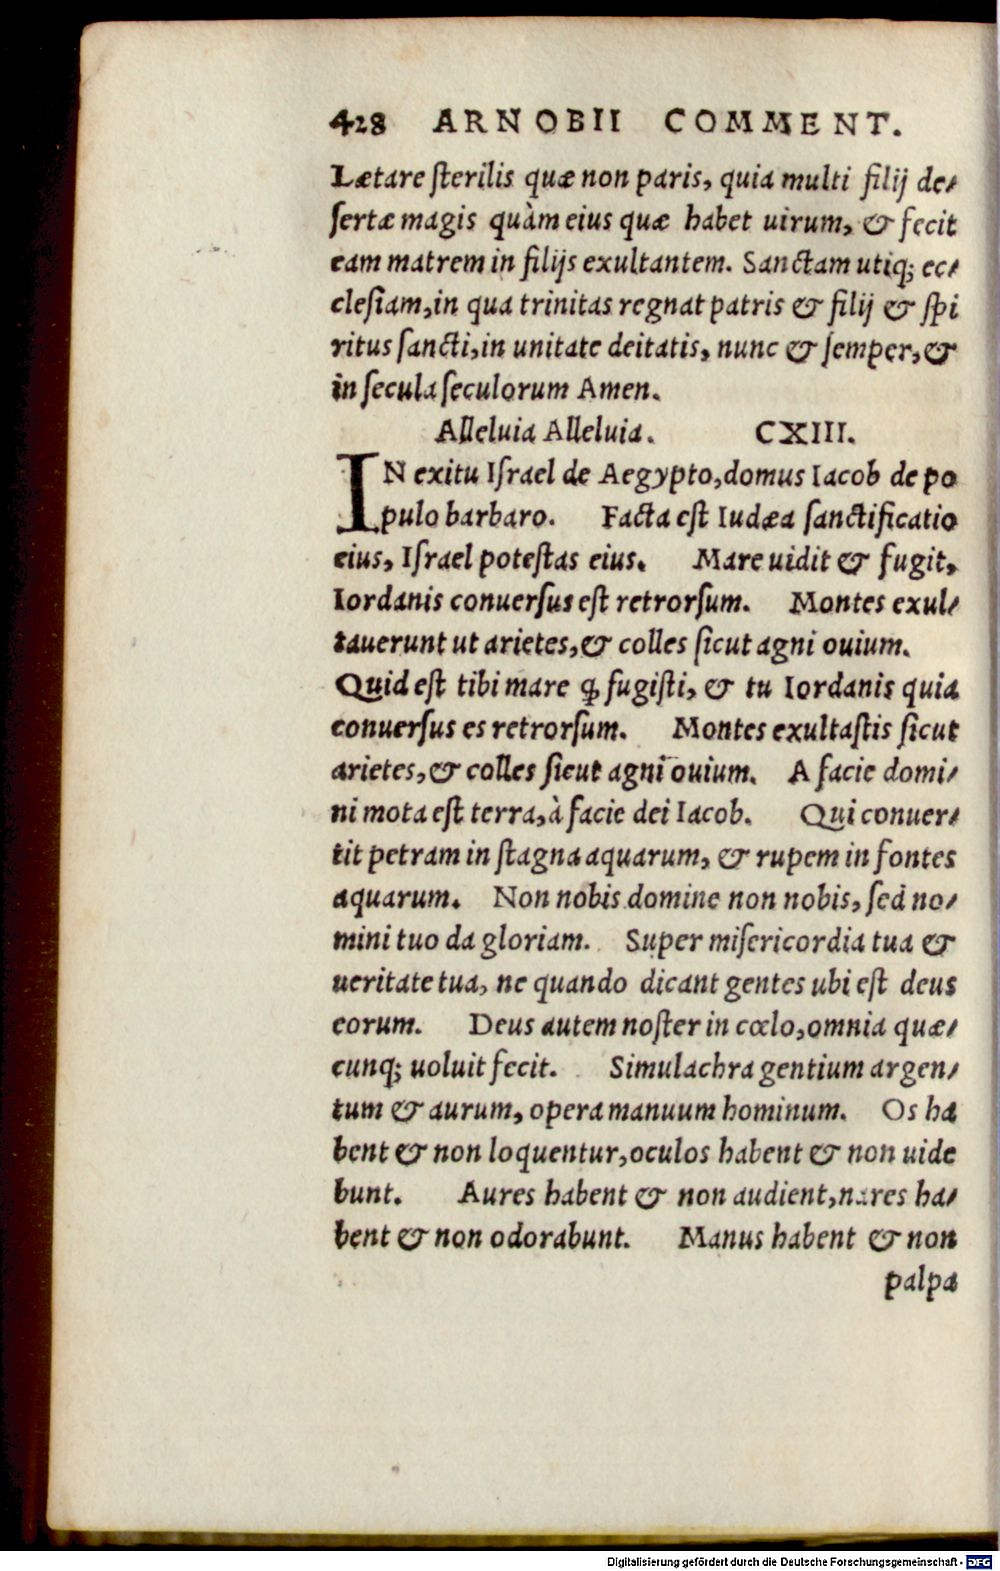 428 ARNOBII COMMENT.
Lætare ſterilis quæ non paris, quia multi filij de-
ſertæ magis quàm eius quæ habet uirum, & fecit
eam matrem in filijs exultantem. Sanctam utiq; ec-
cleſiam, in qua trinitas regnat patris & filij & ſpi
ritus ſancti, in unitate deitatis, nunc & ſemper, &
in ſecula ſeculorum Amen.
Alleluia Alleluia. CXIII.
IN exitu Iſrael de Aegypto, domus Iacob de po
pulo barbaro. Facta eſt Iudæa ſanctificatio
eius, Iſrael poteſtas eius. Mare uidit & fugit,
Iordanis conuerſus eſt retrorſum. Montes exul-
tauerunt ut arietes, & colles ſicut agni ouium.
Quid eſt tibi mare ꝙ fugiſti, & tu Iordanis quia
conuerſus es retrorſum. Montes exultaſtis ſicut
arietes, & colles ſicut agni ouium. A facie domi-
ni mota eſt terra, à facie dei Iacob. Qui conuer-
tit petram in ſtagna aquarum, & rupem in fontes
aquarum. Non nobis domine non nobis, ſed no-
mini tuo da gloriam. Super miſericordia tua &
ueritate tua, ne quando dicant gentes ubi eſt deus
eorum. Deus autem noſter in cœlo, omnia quæ-
cunq; uoluit fecit. Simulachra gentium argen-
tum & aurum, opera manuum hominum. Os ha
bent & non loquentur, oculos habent & non uide
bunt. Aures habent & non audient, nares ha-
bent & non odorabunt. Manus habent & non
palpa
Digitalisierung gefördert durch die Deutsche Forschungsgemeinschaft - DFG